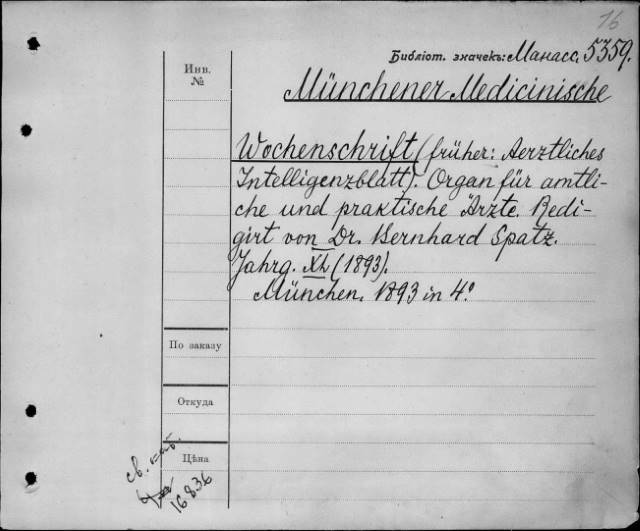 16
Библіот. значекъ: Манасс. 5359.
Инв.
№
Münchener Medicinische
Wochenschrift (früher: Aerztliches
Intelligenzblatt). Organ für amtli-
che und praktische Ärzte. Redi-
girt von Dr. Bernhard Spatz.
Jahrg. XL (1893).
München. 1893 in 4°.
По заказу
Откуда
Цѣна
св.
16836